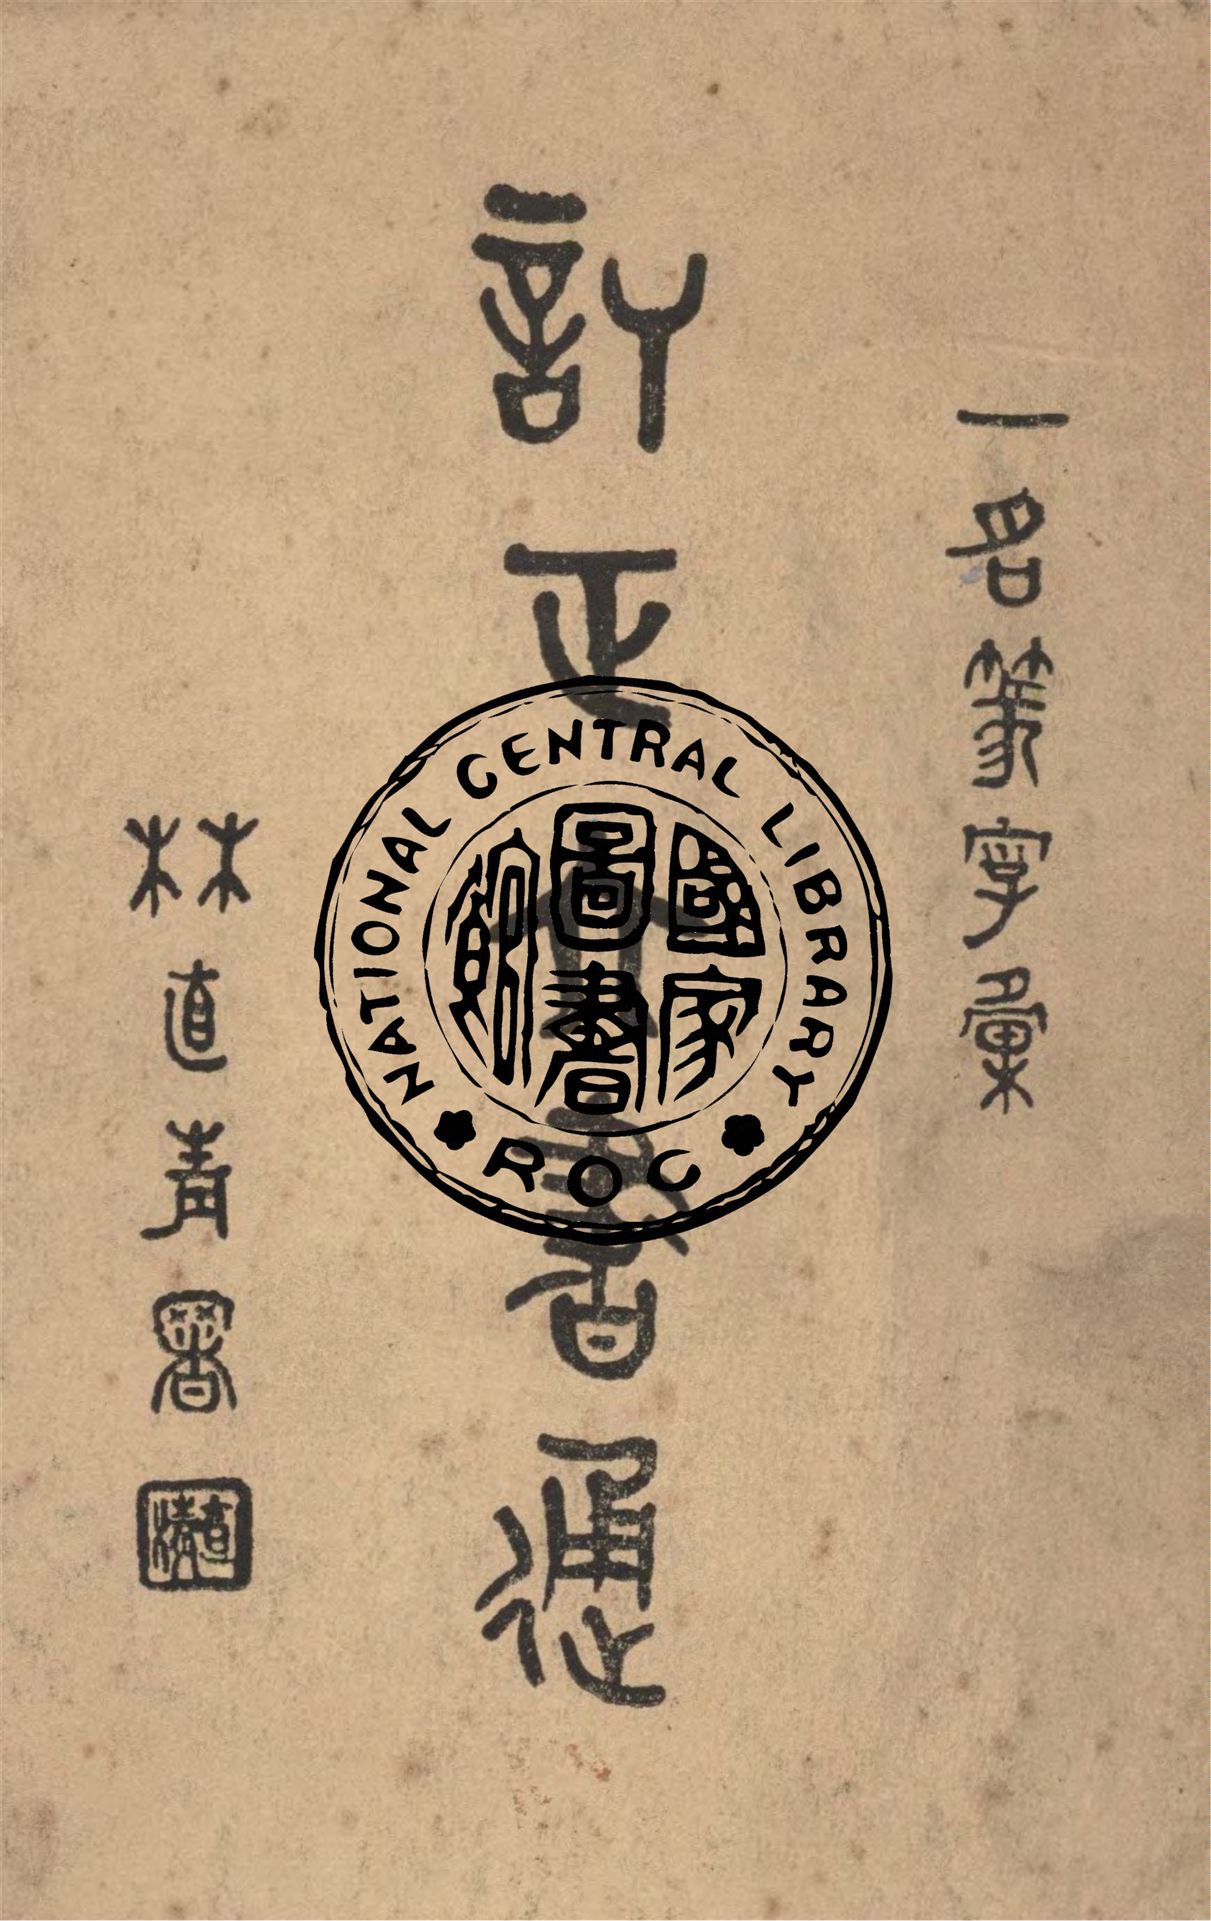 一名篆字彙
訂正六書通
林直青署
NATIONAL CENTRAL LIBRARY
國家
圖書
館
ROC